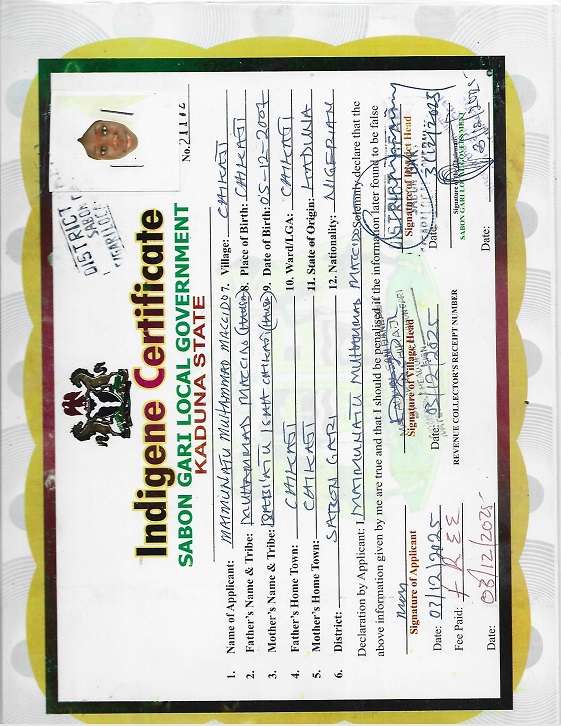 No. 21112
DISTRICT
SABON
GARI LGEA
Indigene Certificate
SABON GARI LOCAL GOVERNMENT
KADUNA STATE
1. Name of Applicant: MAIMUNATU MUHAMMAD MACCIDO 7. Village: CHIKAJI
2. Father's Name & Tribe: MUHAMMAD MACCIDO (HAUSA) 8. Place of Birth: CHIKAJI
3. Mother's Name & Tribe: RABIATU ISAH CHIKAJI (HAUSA) 9. Date of Birth: 05-12-2007
4. Father's Home Town: CHIKAJI 10. Ward/LGA: CHIKAJI
5. Mother's Home Town: CHIKAJI 11. State of Origin: KADUNA
6. District: SABON GARI 12. Nationality: NIGERIAN
Declaration by Applicant: I MAIMUNATU MUHAMMAD MACCIDO Solemnly declare that the
above information given by me are true and that I should be penalised if the information later found to be false
Signature of Applicant Signature of Village Head Signature of District Head
Date: 03/12/2025 Date: 03/12/2025 Date: 3/12/2025
Fee Paid: FREE REVENUE COLLECTOR'S RECEIPT NUMBER SABON GARI LOCAL GOVERNMENT
Date: 03/12/2025 Date: